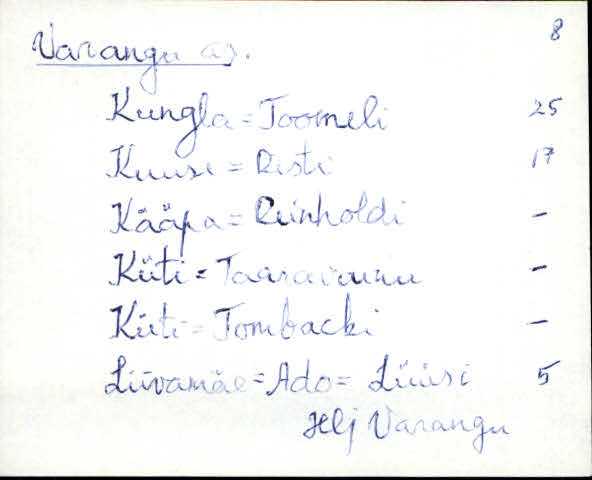 Varangu as. 8
Kungla = Toomeli 25
Kuuse = Risti 17
Kääpa = Reinholdi -
Küti = -
Küti = Tombacki -
Liivamäe = Ado = Lüüsi 5
Hlj Varangu